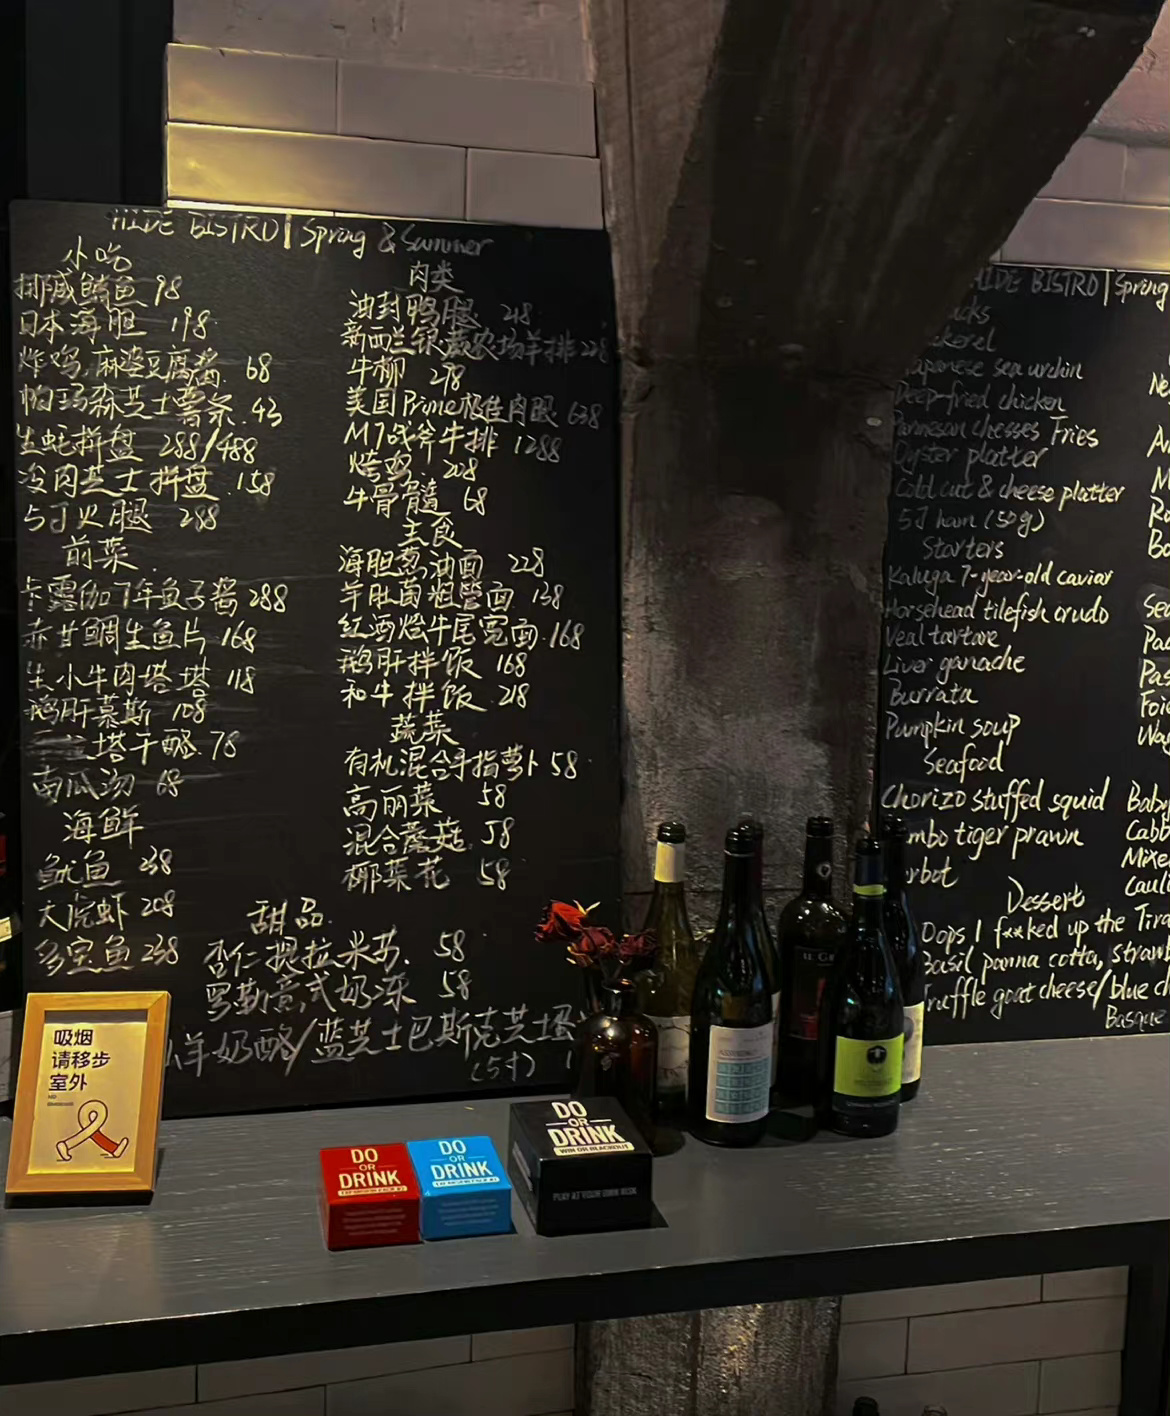 HIDE BISTRO | Spring & Summer
小吃
挪威鲭鱼 98
日本海胆 198
炸鸡.麻婆豆腐酱. 68
帕玛森芝士薯条.43
生蚝拼盘 288/488
冷肉芝士拼盘.158
5J火腿 288
前菜
卡露伽7年鱼子酱 288
赤甘鲷生鱼片 168
生小牛肉塔塔 118
鹅肝慕斯 108
塔干酪.78
南瓜汤 68
海鲜
鱿鱼 238
大虎虾 208
多宝鱼 238
肉类
油封鸭腿 218
新西兰银蕨农场羊排 228
牛柳 278
美国Prime极佳肉眼 638
M7战斧牛排 1288
烤鸡. 208
牛骨髓 68
主食
海胆葱油面 228
羊肚菌粗管面 138
红酒烩牛尾宽面.168
鹅肝拌饭 168
和牛拌饭.218
蔬菜
有机混合手指萝卜 58
高丽菜 58
混合蘑菇. 58
椰菜花 58
甜品
杏仁提拉米苏. 58
罗勒意式奶冻 58
羊奶酪/蓝芝士巴斯克芝士蛋
(5寸) 1
HIDE BISTRO | Spring
Japanese sea urchin
Deep-fried chicken
Parmesan chesses Fries
Oyster platter
Cold cut & cheese platter
5J ham (50g)
Starters
Kaluga 7-year-old caviar
Horsehead tilefish crudo
Veal tartare
Liver ganache
Burrata
Pumpkin soup
Seafood
Chorizo stuffed squid
tiger prawn
Baby
Cabb
Mixe
Cauli
Dessert
Oops I f**ked up the Tira
Basil panna cotta, straw
Truffle goat cheese/blue ch
Basque
吸烟
请移步
室外
DO
OR
DRINK
DO
OR
DRINK
DO
OR
DRINK
WIN OR BLACKOUT
PLAY AT YOUR OWN RISK